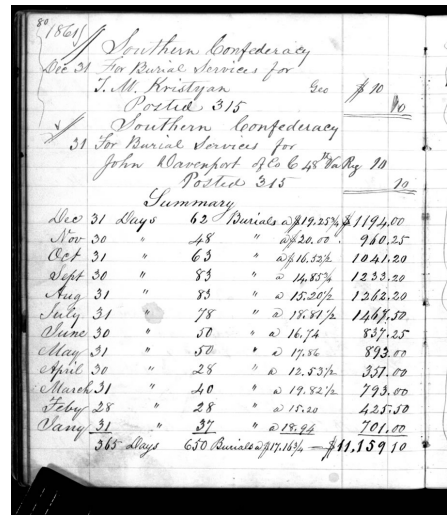 80
1861
Southern Confederacy
Dec 31 For Burial Services for
T. M. Kristyan Geo $10
Posted 315 10
Southern Confederacy
31 For Burial Services for
John Davenport of Co C 48th Va Reg 10
Posted 315 10
Summary
Dec 31 Days 62 Burials a $19.25¾ $1194.00
Nov 30 " 48 " a $20.00 960.25
Oct 31 " 63 " a $16.52½ 1041.20
Sept 30 " 83 " a 14.85¾ 1233.20
Aug 31 " 83 " a 15.20½ 1262.20
July 31 " 78 " a 18.81½ 1467.50
June 30 " 50 " a 16.74 837.25
May 31 " 50 " a 17.86 893.00
April 30 " 28 " a 12.53½ 351.00
March 31 " 40 " a 19.82½ 793.00
Feby 28 " 28 " a 15.20 425.50
Jany 31 " 37 " a 18.94 701.00
365 Days 650 Burials a $17.16¾ — $11,159 10